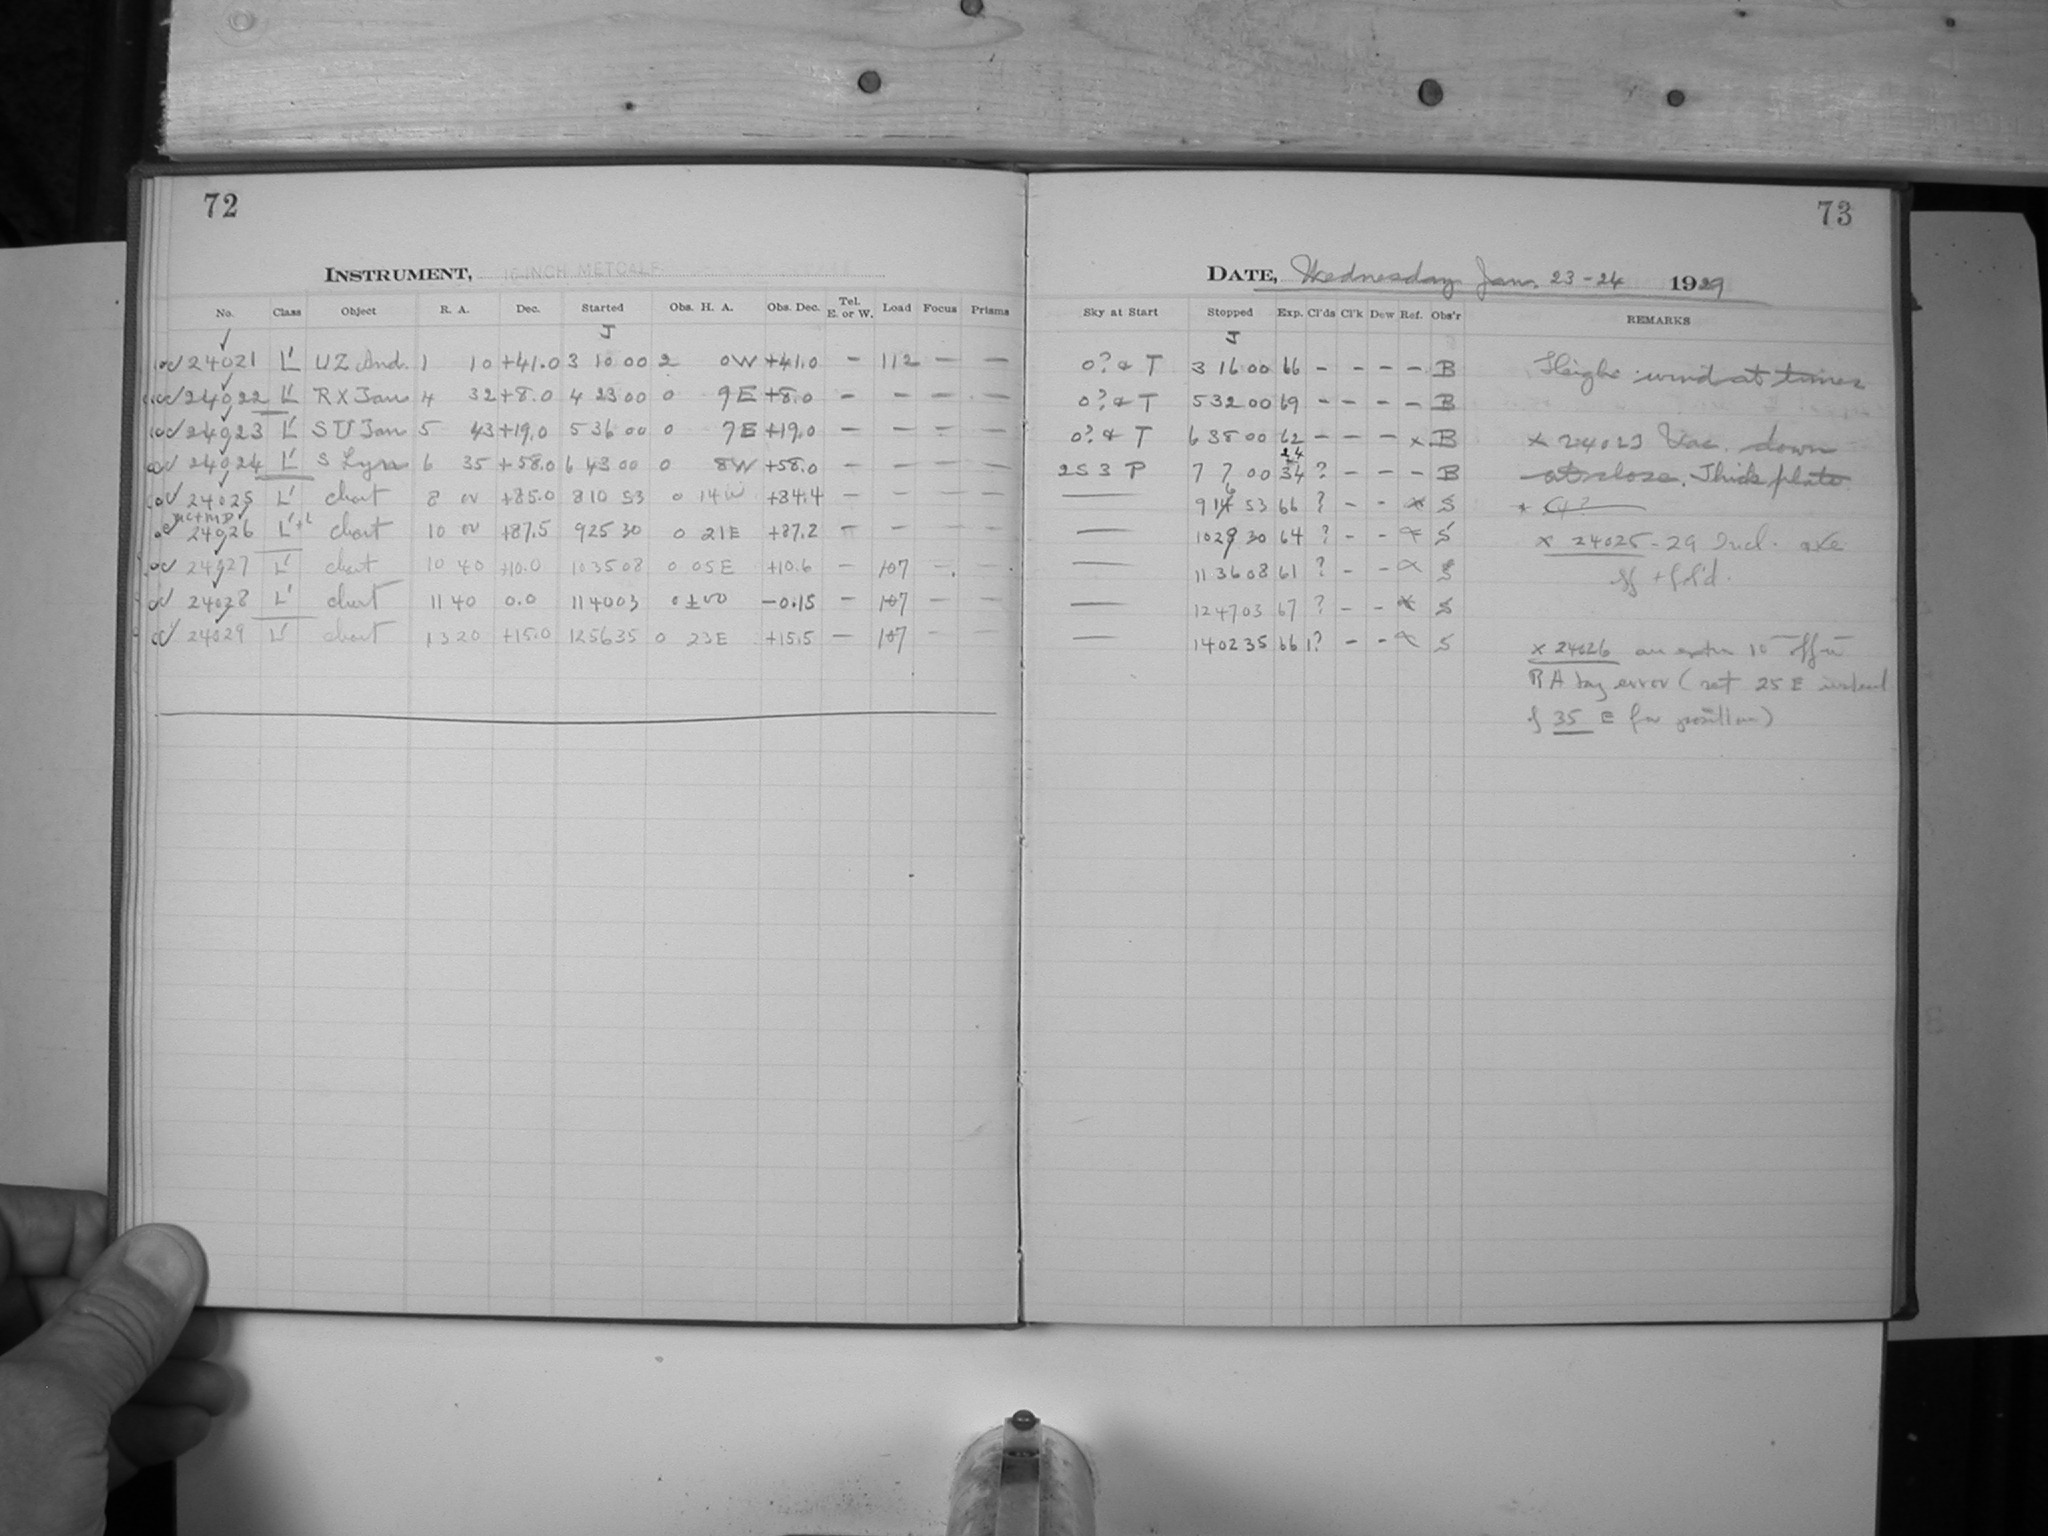 72
INSTRUMENT, 16-INCH METCALF
No. Class Object R. A. Dec. Started Obs. H. A. Obs. Dec. Tel. E. or W. Load Focus Prisms
J
24021 L' UZ And. 1 10 +41.0 3 10 00 2 0W +41.0 – 112 – –
24022 L' RX Tau 4 32 +8.0 4 23 00 0 9E +8.0 – – – –
24023 L' SU Tau 5 43 +19.0 5 36 00 0 7E +19.0 – – – –
24024 L' S Lyn 6 35 +58.0 6 43 00 0 8W +58.0 – – – –
24025 L' chart 8 00 +85.0 8 10 53 0 14W +84.4 – – – –
MC+MD
24026 L'+L chart 10 00 +87.5 9 25 30 0 21E +87.2 – – – –
24027 L' chart 10 40 +10.0 10 35 08 0 05E +10.6 – 107 – –
24028 L' chart 11 40 0.0 11 40 03 0 ±00 –0.15 – 107 – –
24029 L' chart 13 20 +15.0 12 56 35 0 23E +15.5 – 107 – –
73
DATE, Wednesday Jan. 23-24 1929
Sky at Start Stopped Exp. Cl'ds Cl'k Dew Ref. Obs'r REMARKS
J
0? & T 3 16 00 66 – – – – B wind at times
0? & T 5 32 00 69 – – – – B
0? & T 6 38 00 62 – – – x B x 24023 Vac. down
24
2S 3 P 7 7 00 34 ? – – – B at close. Thick plate
— 9 16 53 66 ? – – x S
— 10 29 30 64 ? – – x S x 24025-29 Incl. axe
— 11 36 08 61 ? – – x S off +
— 12 47 03 67 ? – – x S
— 14 02 35 66 1? – – x S
x 24026 an extra 10 off in
RA by error (set 25 E instead
of 35 E for position)